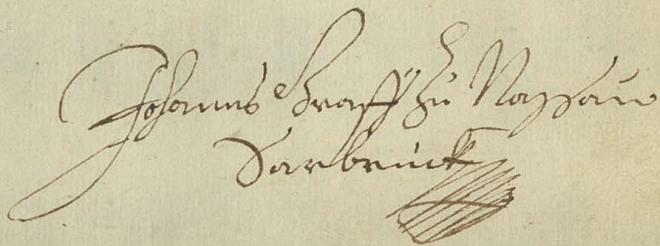 Johanns Graff zu Nassaw
Sarbrück